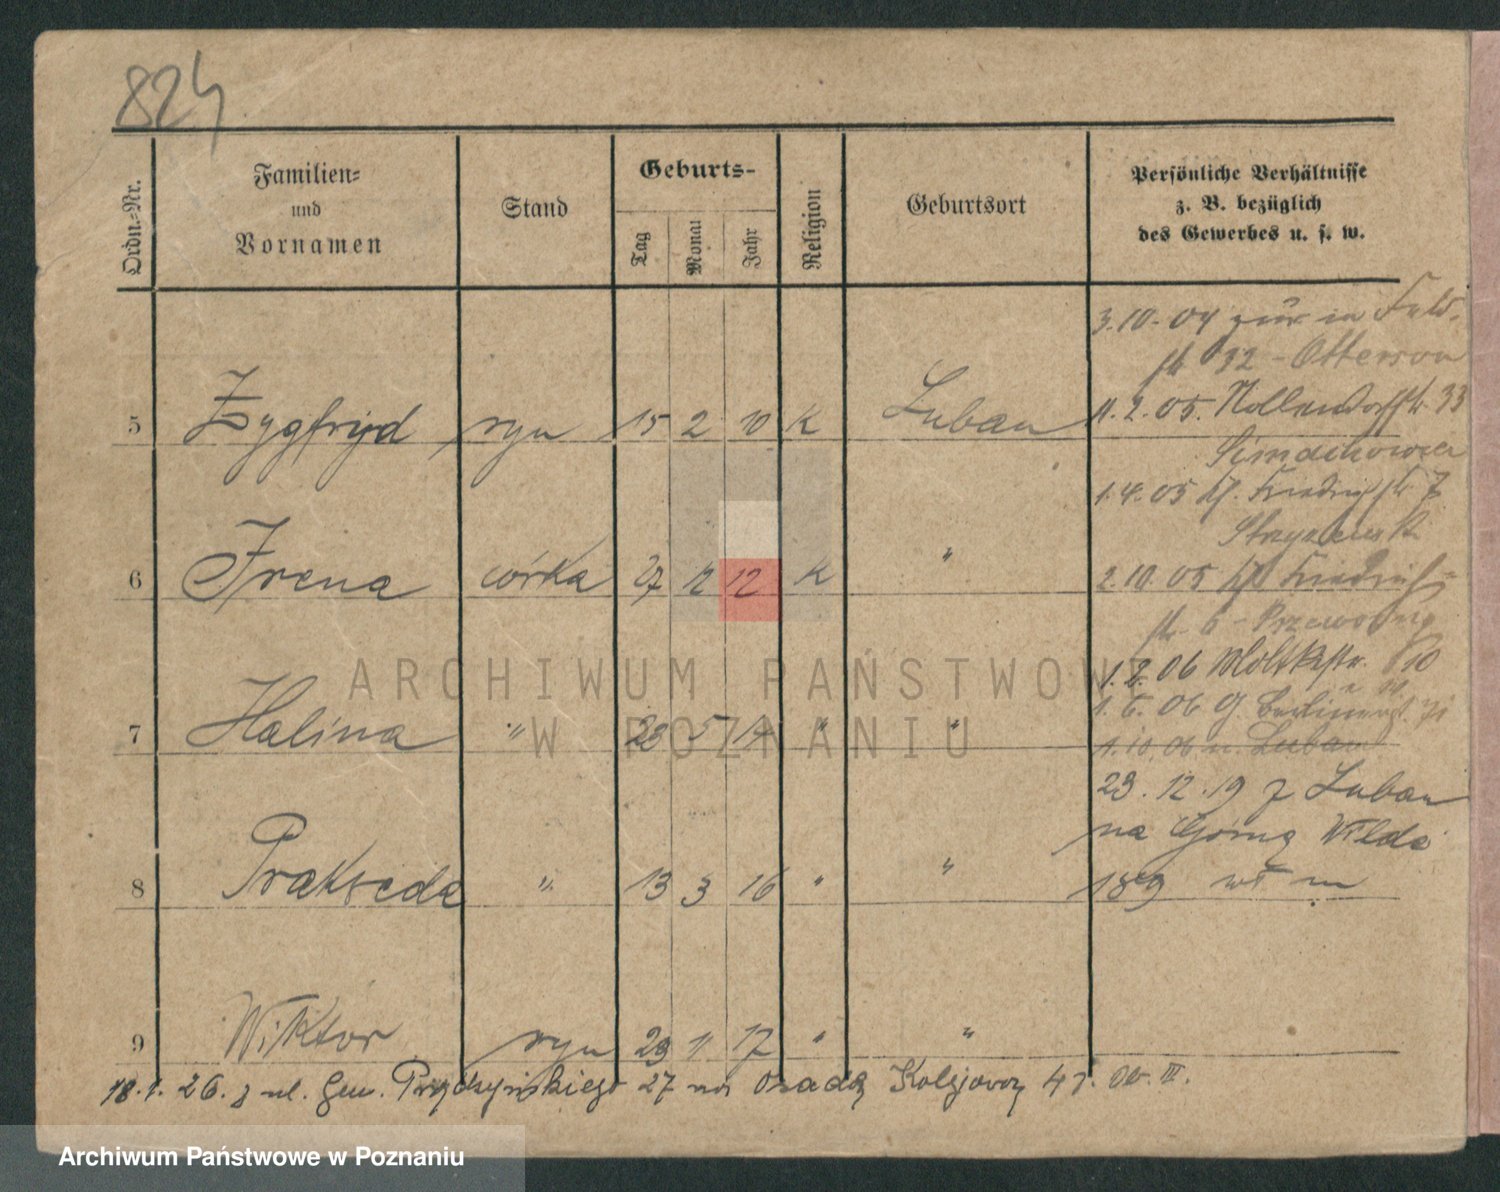 824
Ordn.-Nr.
Familien-
und
Vornamen
Stand
Geburts-
Tag
Monat
Jahr
Religion
Geburtsort
Persönliche Verhältnisse
z. B. bezüglich
des Gewerbes u. s. w.
5 Zygfryd syn 15 2 10 K Luban
6 Irena córka 27 12 12 K "
7 Halina " 23 5 14 " "
8 Prakseda " 13 3 16 " "
9 Wiktor syn 23 11 17 " "
3.10.04 zur in Feld-
str 32 - Otterson
11.2.05. Nollendorfstr 33
1.4.05 Friedrichstr 7
2.10.05 Friedrich-
str. 6 -
1.2.06 Moltkestr. 10
1.6.06 G. Berlinerst.
1.10.06 n. Luban
23.12.19 z Luban
na Górną Wilda
189
18.1.26. z ul. Gen. Prądzyńskiego 27 na Osadę Kolejową 41. Ob. III.
ARCHIWUM PAŃSTWOWE
W POZNANIU
Archiwum Państwowe w Poznaniu